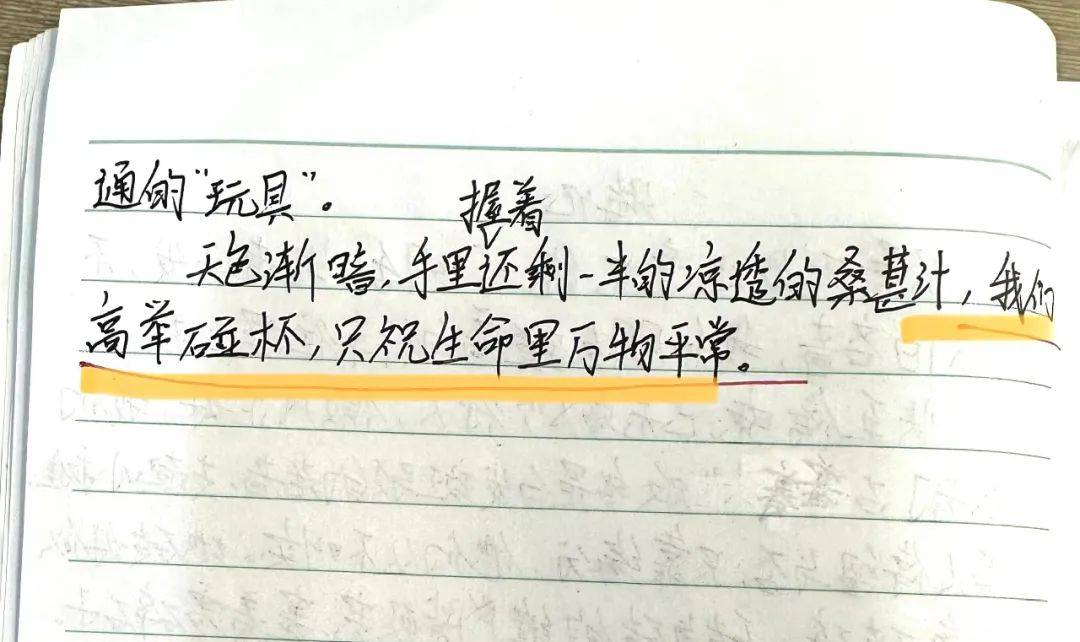 通的“玩具”。
握着
天色渐暗,手里还剩一半的凉透的桑葚汁,我们
高举碰杯,只祝生命里万物平常。